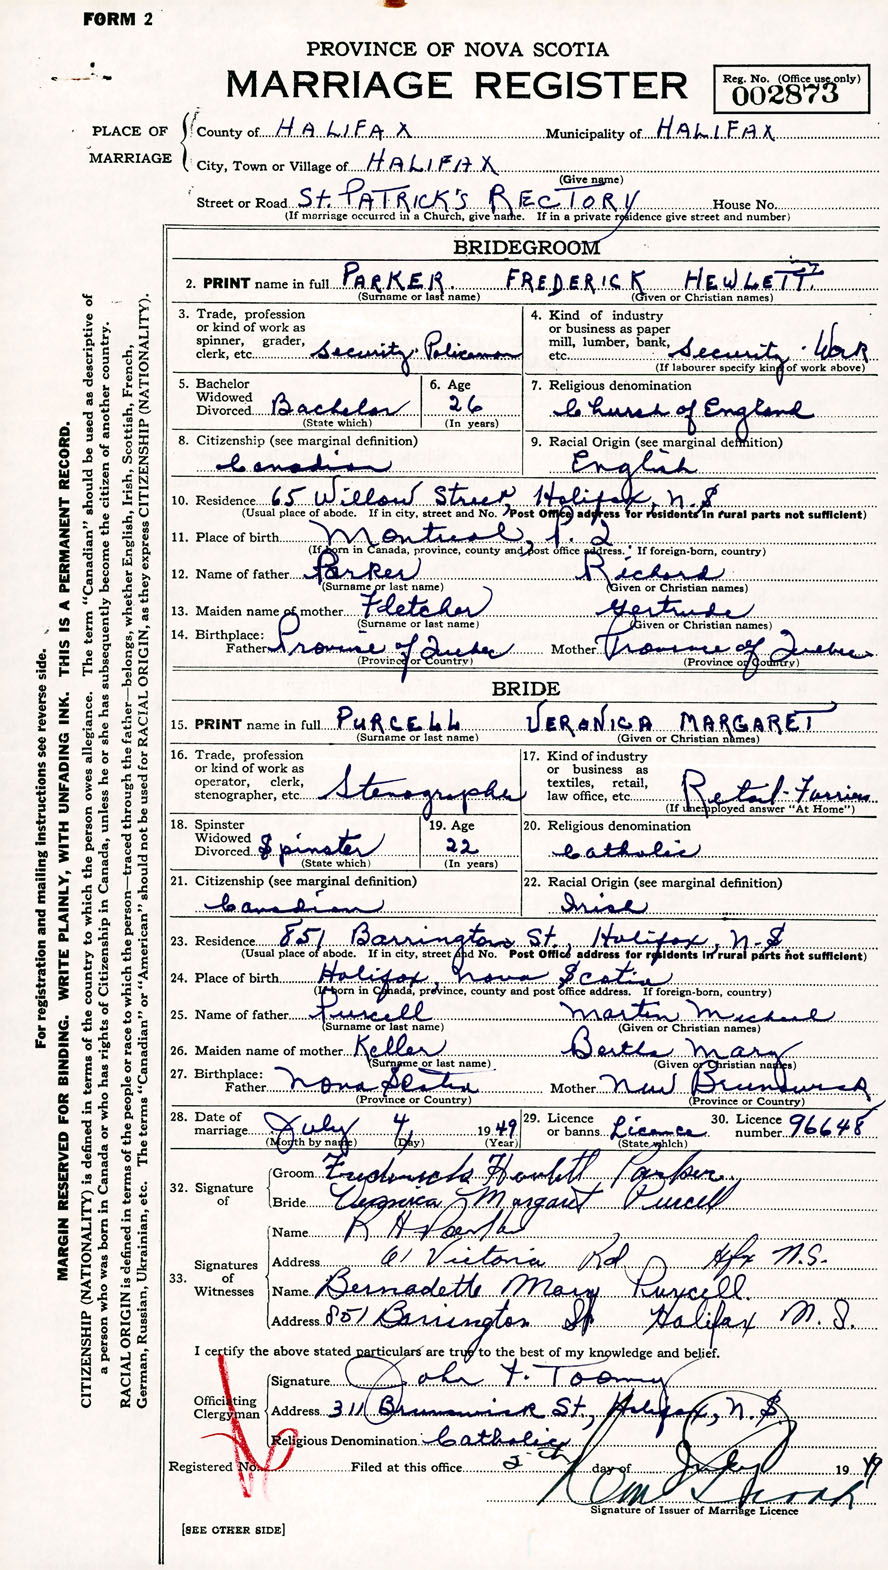 FORM 2
PROVINCE OF NOVA SCOTIA
MARRIAGE REGISTER
Reg. No. (Office use only)
002873
PLACE OF MARRIAGE
County of HALIFAX Municipality of HALIFAX
City, Town or Village of HALIFAX
(Give name)
Street or Road St. PATRICK'S RECTORY House No.
(If marriage occurred in a Church, give name. If in a private residence give street and number)
BRIDEGROOM
2. PRINT name in full PARKER. FREDERICK HEWLETT.
(Surname or last name) (Given or Christian names)
3. Trade, profession or kind of work as spinner, grader, clerk, etc. Security Policeman
4. Kind of industry or business as paper mill, lumber, bank, etc. Security Work
(If labourer specify kind of work above)
5. Bachelor Widowed Divorced Bachelor
(State which)
6. Age 26
(In years)
7. Religious denomination Church of England
8. Citizenship (see marginal definition) Canadian
9. Racial Origin (see marginal definition) English
10. Residence 65 Willow Street, Halifax, N.S
(Usual place of abode. If in city, street and No. Post Office address for residents in rural parts not sufficient)
11. Place of birth Montreal, P. 2
(If born in Canada, province, county and post office address. If foreign-born, country)
12. Name of father Parker Richard
(Surname or last name) (Given or Christian names)
13. Maiden name of mother Fletcher Gertrude
(Surname or last name) (Given or Christian names)
14. Birthplace: Father Province of Quebec Mother Province of Quebec
(Province or Country) (Province or Country)
BRIDE
15. PRINT name in full PURCELL VERONICA MARGARET
(Surname or last name) (Given or Christian names)
16. Trade, profession or kind of work as operator, clerk, stenographer, etc. Stenographer
17. Kind of industry or business as textiles, retail, law office, etc. Retail-Furriers
(If unemployed answer "At Home")
18. Spinster Widowed Divorced Spinster
(State which)
19. Age 22
(In years)
20. Religious denomination Catholic
21. Citizenship (see marginal definition) Canadian
22. Racial Origin (see marginal definition) Irish
23. Residence 851 Barrington St., Halifax, N.S
(Usual place of abode. If in city, street and No. Post Office address for residents in rural parts not sufficient)
24. Place of birth Halifax, Nova Scotia
(If born in Canada, province, county and post office address. If foreign-born, country)
25. Name of father Purcell Martin Michael
(Surname or last name) (Given or Christian names)
26. Maiden name of mother Keller Bertha Mary
(Surname or last name) (Given or Christian names)
27. Birthplace: Father Nova Scotia Mother New Brunswick
(Province or Country) (Province or Country)
28. Date of marriage July 4, 1949
(Month by name) (Day) (Year)
29. Licence or banns Licence
(State which)
30. Licence number 96648
32. Signature of
Groom Frederick Hewlett Parker
Bride Veronica Margaret Purcell
33. Signatures of Witnesses
Name R H Parker
Address 61 Victoria Rd Hfx N.S.
Name Bernadette Mary Purcell
Address 851 Barrington St Halifax N.S.
I certify the above stated particulars are true to the best of my knowledge and belief.
Officiating Clergyman
Signature John F. Toomey
Address 311 Brunswick St., Halifax, N.S
Religious Denomination Catholic
Registered No. Filed at this office day of July 1949
Signature of Issuer of Marriage Licence
[SEE OTHER SIDE]
For registration and mailing instructions see reverse side.
MARGIN RESERVED FOR BINDING. WRITE PLAINLY, WITH UNFADING INK. THIS IS A PERMANENT RECORD.
CITIZENSHIP (NATIONALITY) is defined in terms of the country to which the person owes allegiance. The term "Canadian" should be used as descriptive of
a person who was born in Canada or who has rights of Citizenship in Canada, unless he or she has subsequently become the citizen of another country.
RACIAL ORIGIN is defined in terms of the people or race to which the person—traced through the father—belongs, whether English, Irish, Scottish, French,
German, Russian, Ukrainian, etc. The terms "Canadian" or "American" should not be used for RACIAL ORIGIN, as they express CITIZENSHIP (NATIONALITY).